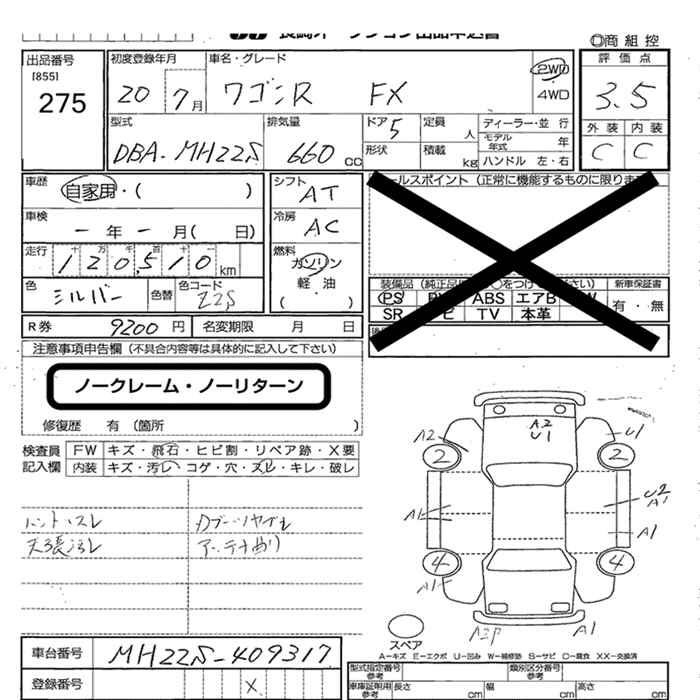 ◎商 組 控
出品番号 初度登録年月 車名・グレード 2WD 評 価 点
[855]
275 20 7月 ワゴンR FX 4WD 3.5
型式 排気量 ドア 5 定員 人 ディーラー・並 行 外 装 内 装
DBA-MH22S 660 CC 形状 積載 kg モデル年式 年 C C
ハンドル 左・右
車歴 自家用・( ) シフト AT
ールスポイント (正常に機能するものに限りま
車検 - 年 - 月( 日) 冷房 AC
走行 十 万 千 百 十 一 燃料
1 2 0 5 1 0 km ガソリン
軽 油
( )
色 シルバー 色替 色コード Z2S
装備品 (純正品 ○をつけ ださい) 新車保証書
PS ABS エアB W 有・無
SR ビ TV 本革
R券 9200 円 名変期限 月 日
注意事項申告欄 (不具合内容等は具体的に記入して下さい)
ノークレーム・ノーリターン
修復歴 有 (箇所 )
検査員 FW キズ・飛石・ヒビ割・リペア跡・X要
記入欄 内装 キズ・汚レ・コゲ・穴・スレ・キレ・破レ
ハンドルスレ
天張汚レ アンテナ曲り
A2 U1
A2 U1
2 2
A1 U2 A1
A1
4 4
A1
A1
スペア
A-キズ E-エクボ U-凹み W-補修跡 S-サビ C-腐食 XX-交換済
車台番号 MH22S-409317
登録番号 X
型式指定番号 参考 類別区分番号 参考
車庫証明用 参考 長さ cm 幅 cm 高さ cm